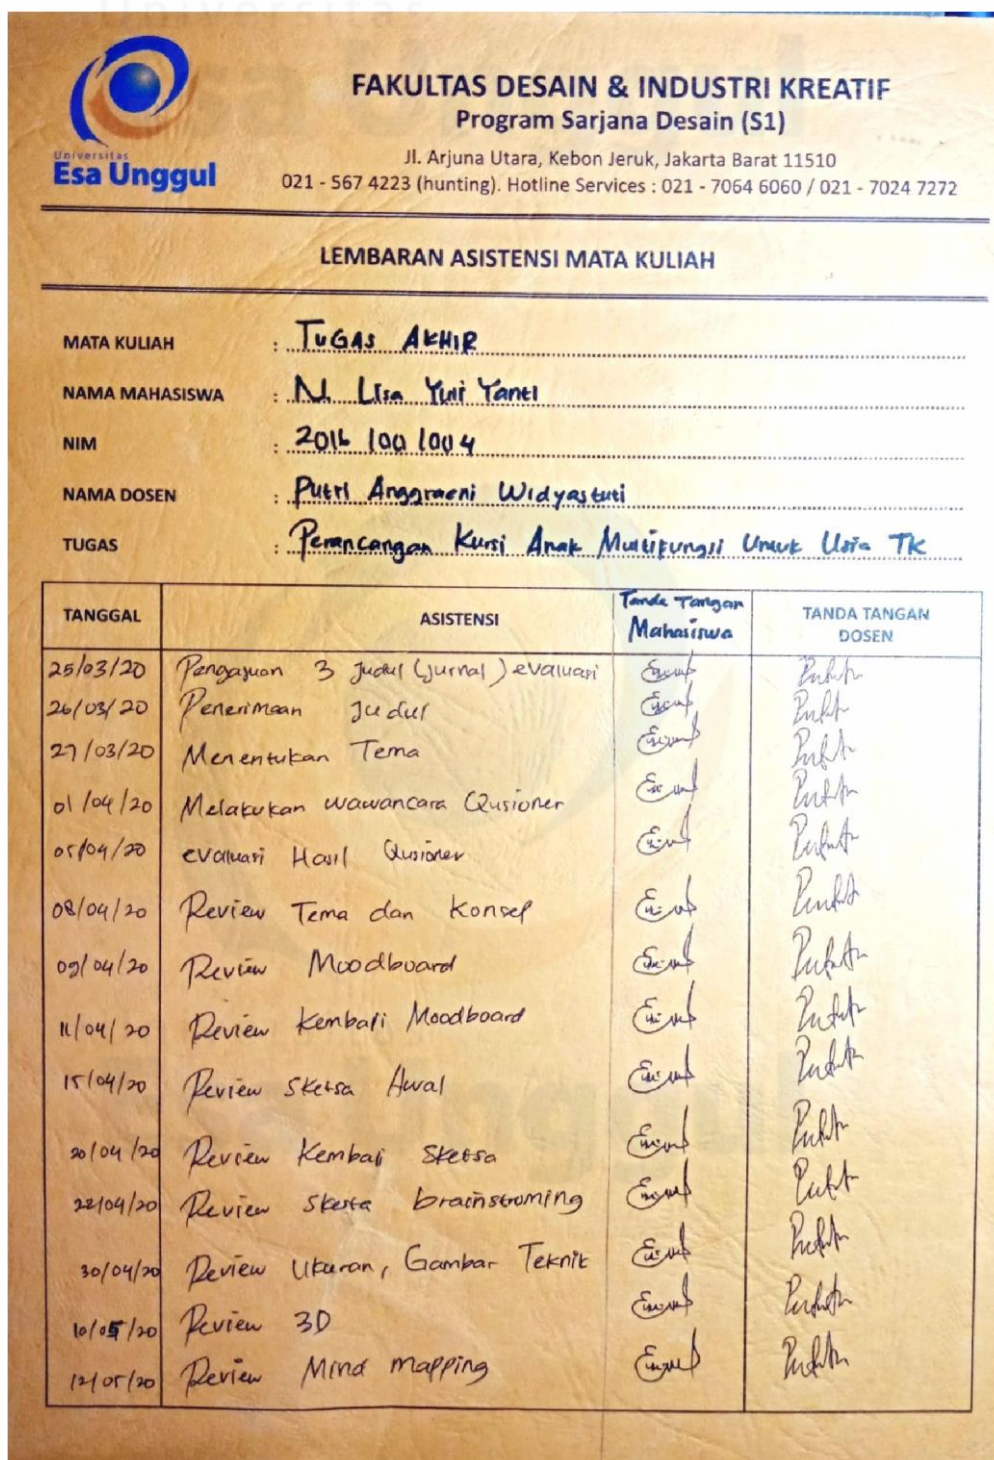 Universitas
Universitas
Esa Unggul
FAKULTAS DESAIN & INDUSTRI KREATIF
Program Sarjana Desain (S1)
Jl. Arjuna Utara, Kebon Jeruk, Jakarta Barat 11510
021 - 567 4223 (hunting). Hotline Services : 021 - 7064 6060 / 021 - 7024 7272
LEMBARAN ASISTENSI MATA KULIAH
MATA KULIAH : TUGAS AKHIR
NAMA MAHASISWA : N. Lisa Yuli Yanti
NIM : 2016 100 1004
NAMA DOSEN : Putri Anggraeni Widyastuti
TUGAS : Perancangan Kursi Anak Multifungsi Untuk Usia TK
TANGGAL ASISTENSI Tanda Tangan Mahasiswa TANDA TANGAN DOSEN
25/03/20 Pengajuan 3 Judul (Jurnal) evaluasi
26/03/20 Penerimaan Judul
27/03/20 Menentukan Tema
01/04/20 Melakukan wawancara Qusioner
05/04/20 evaluasi Hasil Qusioner
08/04/20 Review Tema dan Konsep
09/04/20 Review Moodboard
11/04/20 Review Kembali Moodboard
15/04/20 Review Sketsa Awal
20/04/20 Review Kembali Sketsa
28/04/20 Review Sketsa brainstroming
30/04/20 Review Ukuran, Gambar Teknik
10/05/20 Review 3D
12/05/20 Review Mind mapping